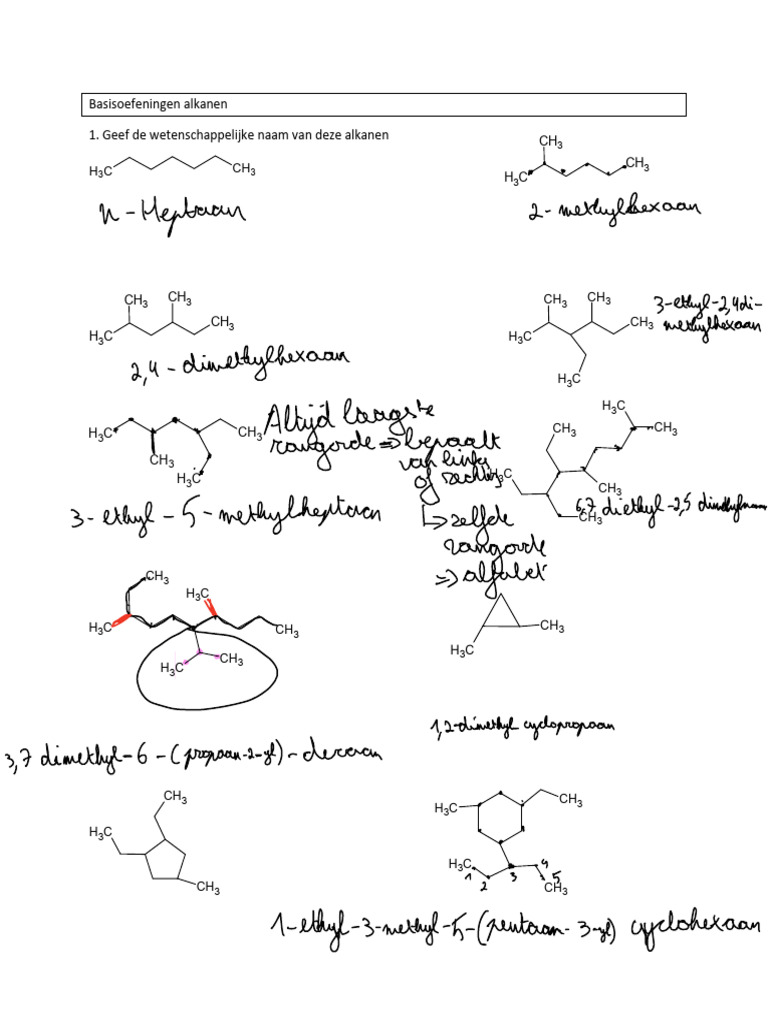 Basisoefeningen alkanen
1. Geef de wetenschappelijke naam van deze alkanen
H₃C CH₃
n-Heptaan
CH₃
H₃C CH₃
2-methylhexaan
CH₃ CH₃
H₃C CH₃
2,4-dimethylhexaan
CH₃ CH₃
H₃C CH₃
H₃C
3-ethyl-2,4di-
methylhexaan
H₃C CH₃
CH₃
H₃C
3-ethyl-5-methylheptaan
Altijd laagste
rangorde => bepaalt
van links
of rechts
↳ zelfde
rangorde
=> alfabet
H₃C
CH₃ CH₃
H₃C
CH₃
CH₃
6,7 diethyl-2,5 dimethylnonaan
CH₃
H₃C
H₃C CH₃
H₃C CH₃
3,7 dimethyl-6-(propaan-2-yl)-decaan
H₃C CH₃
1,2-dimethyl cyclopropaan
CH₃
H₃C
CH₃
H₃C CH₃
H₃C 4
1 2 3 5
CH₃
1-ethyl-3-methyl-5-(pentaan-3-yl) cyclohexaan